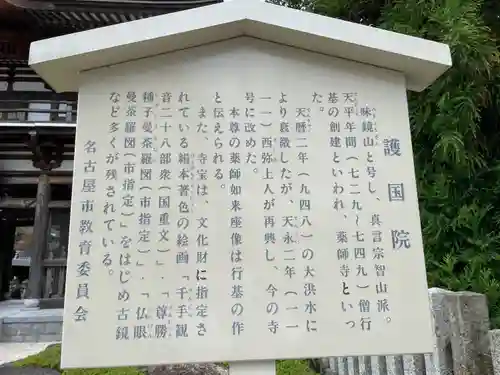 護国院
味鏡山と号し、真言宗智山派。
天平年間（七二九～七四九）僧行
基の創建といわれ、薬師寺といっ
た。
天暦二年（九四八）の大洪水に
より衰微したが、天永二年（一一
一一）西弥上人が再興し、今の寺
号に改めた。
本尊の薬師如来座像は行基の作
と伝えられる。
また、寺宝は、文化財に指定さ
れている絹本著色の絵画「千手観
音二十八部衆（国重文）」、「尊勝
種子曼荼羅図（市指定）」、「仏眼
曼荼羅図（市指定）」をはじめ古鏡
など多くが残されている。
名古屋市教育委員会